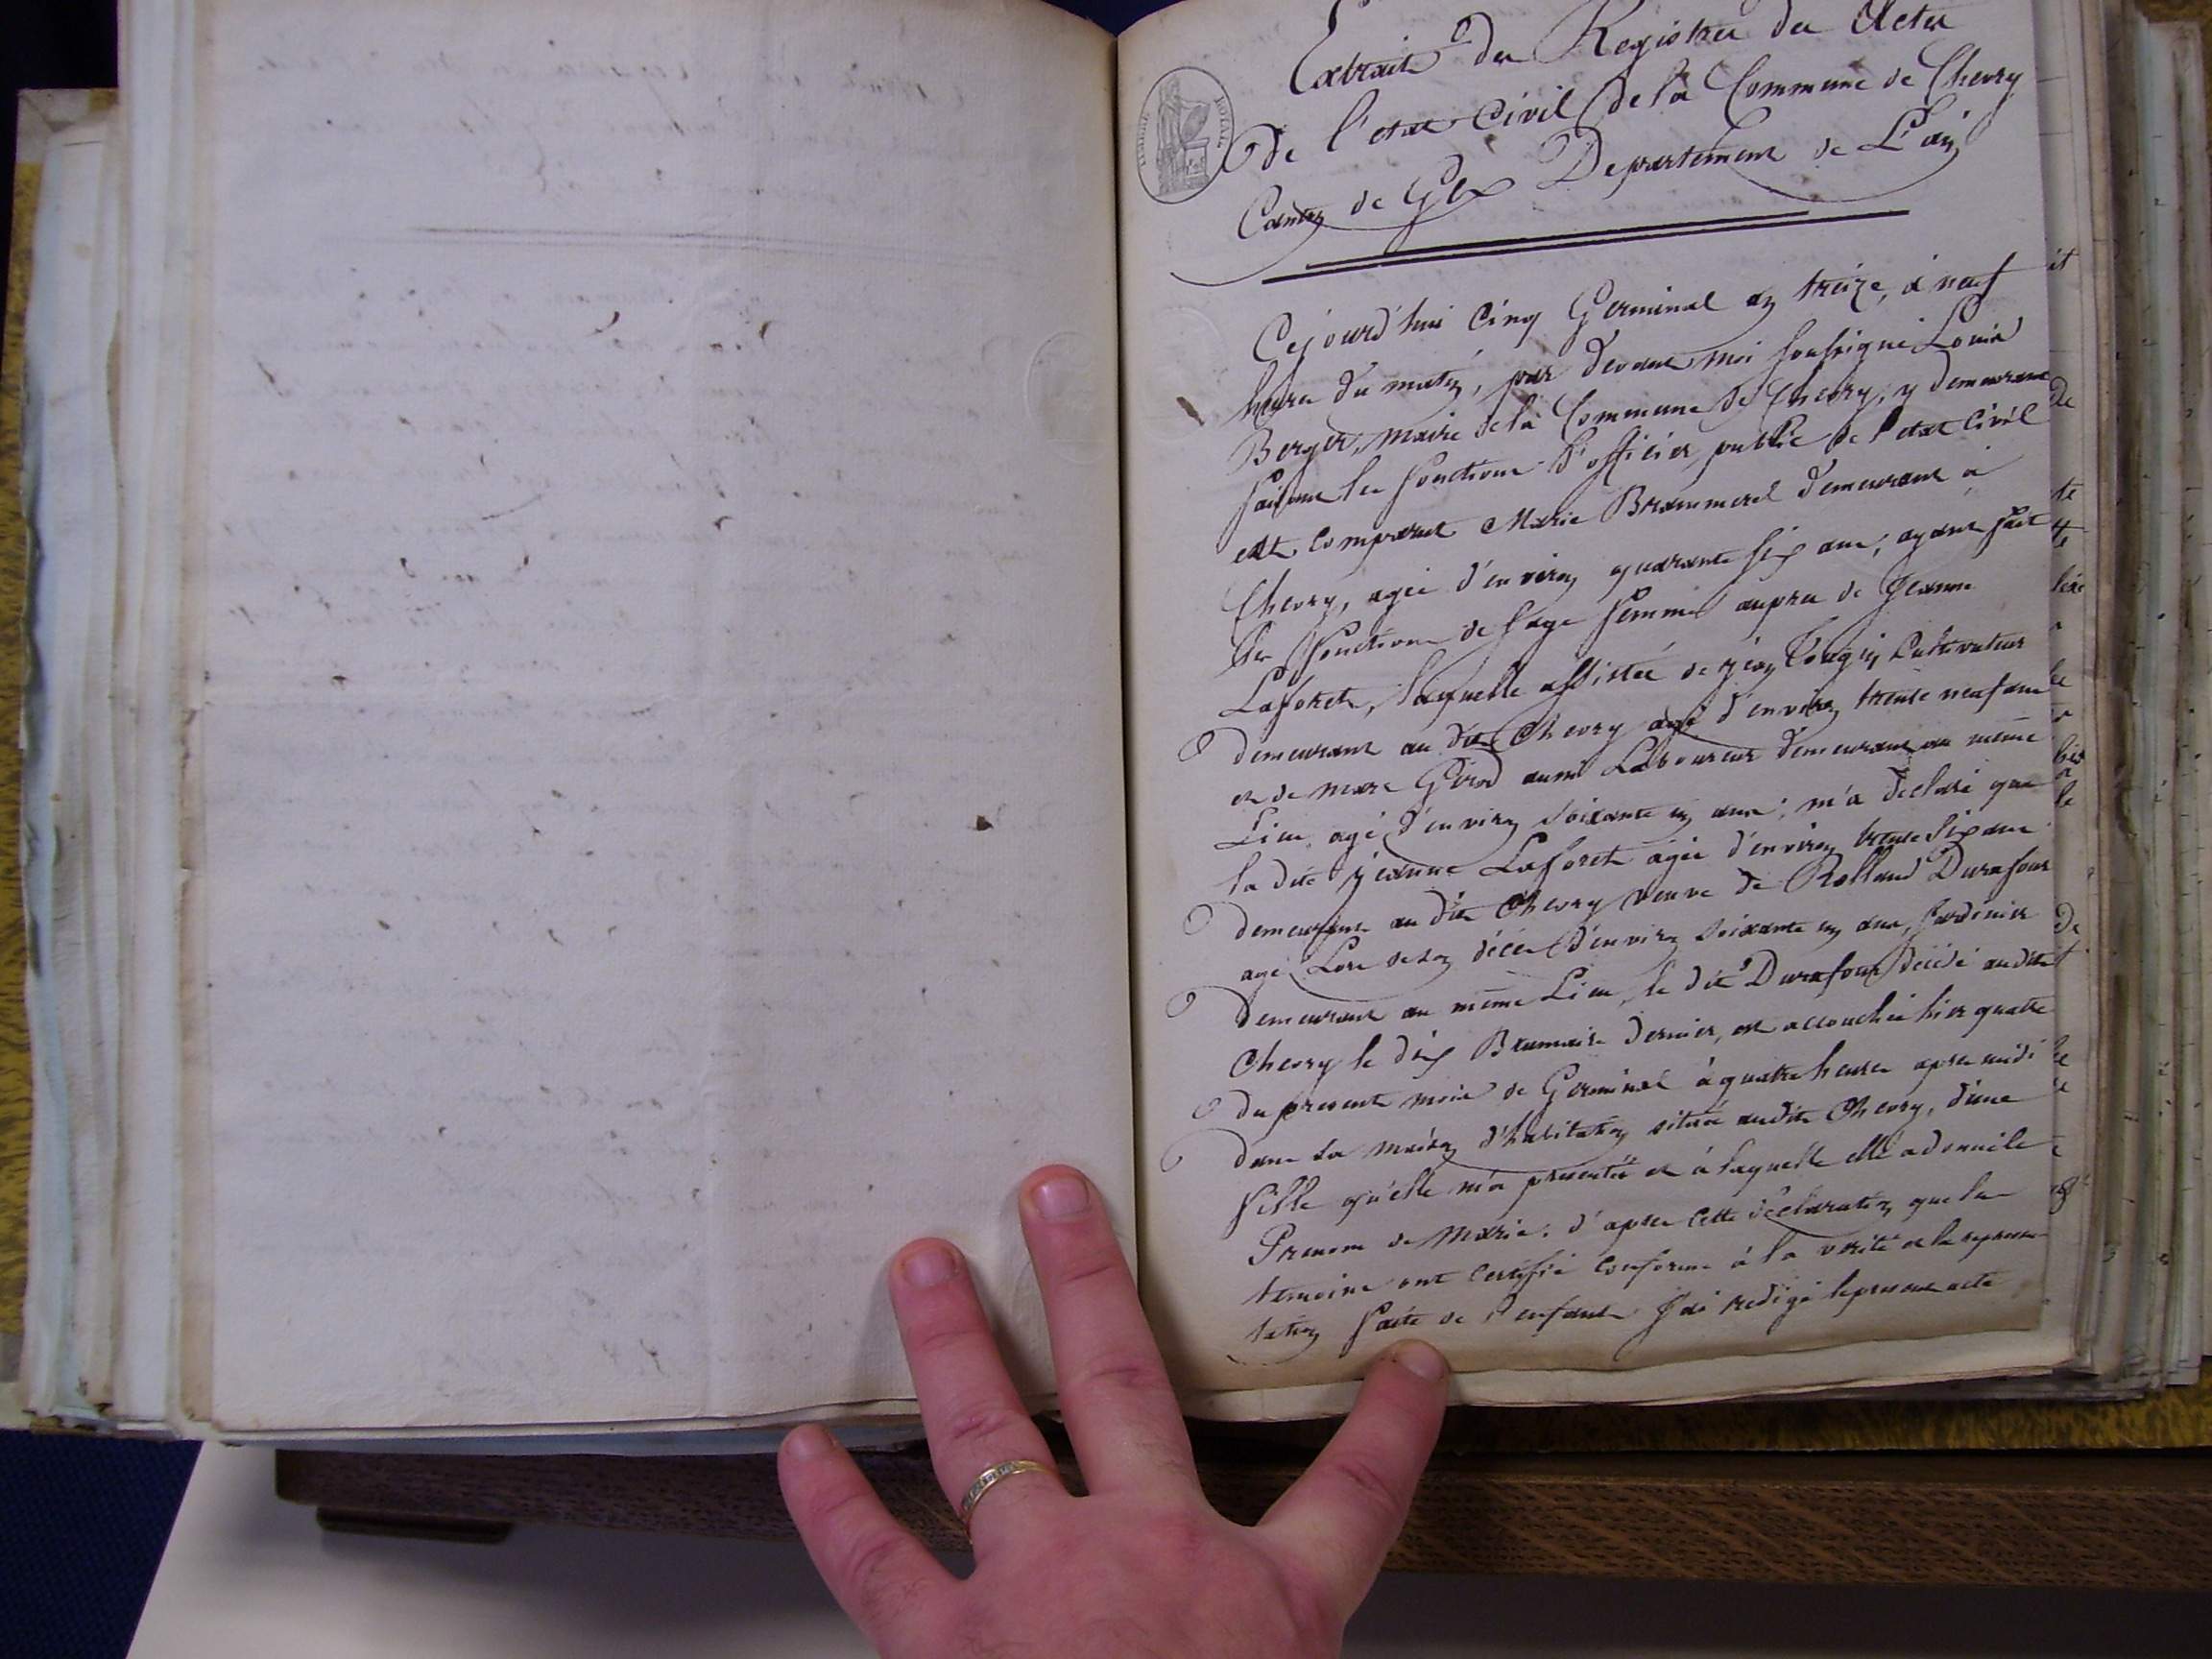 Extrait des Registres des Actes
De l'etat Civil de la Commune de Chevry
Canton de Gex Departement de L'ain
TIMBRE ROYAL
Cejourd'hui Cinq Germinal an treize, à neuf
heures du matin, par devant moi soussigné Louis
Berger, maire de la Commune de Chevry, y demeurant
faisant les fonctions d'officier public de l'etat Civil
est comparut Marie Brammerel demeurant à
Chevry, agée d'environ quarante six ans, ayant fait
les fonctions de sage femme aupres de Jeanne
Laforet, laquelle assistée de jean Tougin Cultivateur
demeurant au dit Chevry agé d'environ trente neuf ans
et de marc Girod aussi Laboureur demeurant au meme
Lieu agé d'environ soixante un ans; m'a declaré que
la dite jeanne Laforet agée d'environ trente six ans
demeurant au dit Chevry veuve de Rolland Durafour
agé Lors de son décès d'environ soixante un ans, Jardinier
demeurant au même Lieu, le dit Durafour décédé audit
Chevry le dix Brumaire dernier, est accouchée hier quatre
du present mois de Germinal à quatre heures apres midi
dans sa maison d'habitation située audit Chevry, d'une
fille qu'elle m'a presentée et à laquelle elle a donné le
Prenom de Marie: d'apres cette déclaration que les
temoins ont certifié conforme à la verité et la represen-
tation faite de l'enfant J'ai redigé le present acte